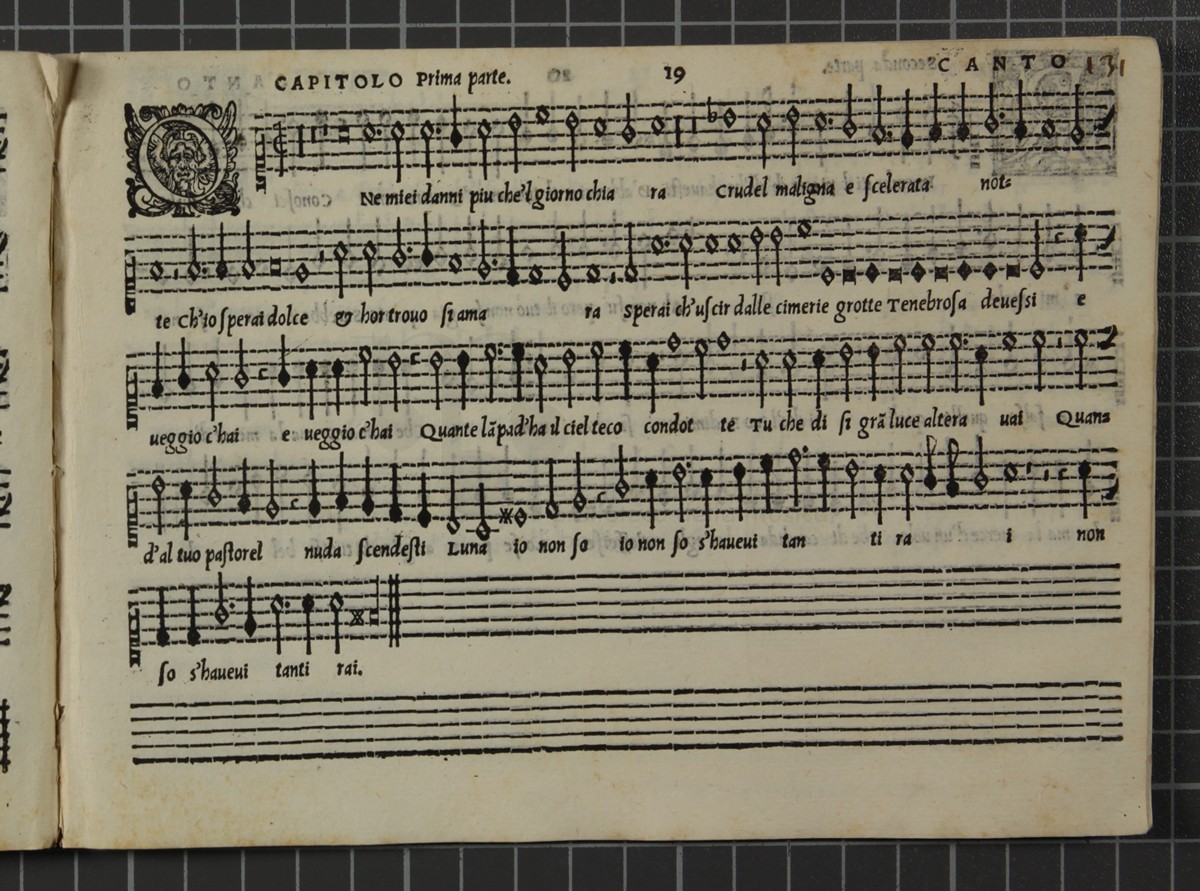 CAPITOLO Prima parte. 19 CANTO 131
O Ne miei danni piu che'l giorno chia ra Crudel maligna e scelerata not=
te Ch'io sperai dolce & hor trouo si ama ra Sperai ch'uscir dalle cimerie grotte Tenebrosa deuessi e
ueggio c'hai e ueggio c'hai Quante lãpad'ha il ciel teco condot te Tu che di si grã luce altera uai Quan=
d'al tuo pastorel nuda scendesti Luna io non so io non so s'haueui tan ti ra i non
so s'haueui tanti rai.